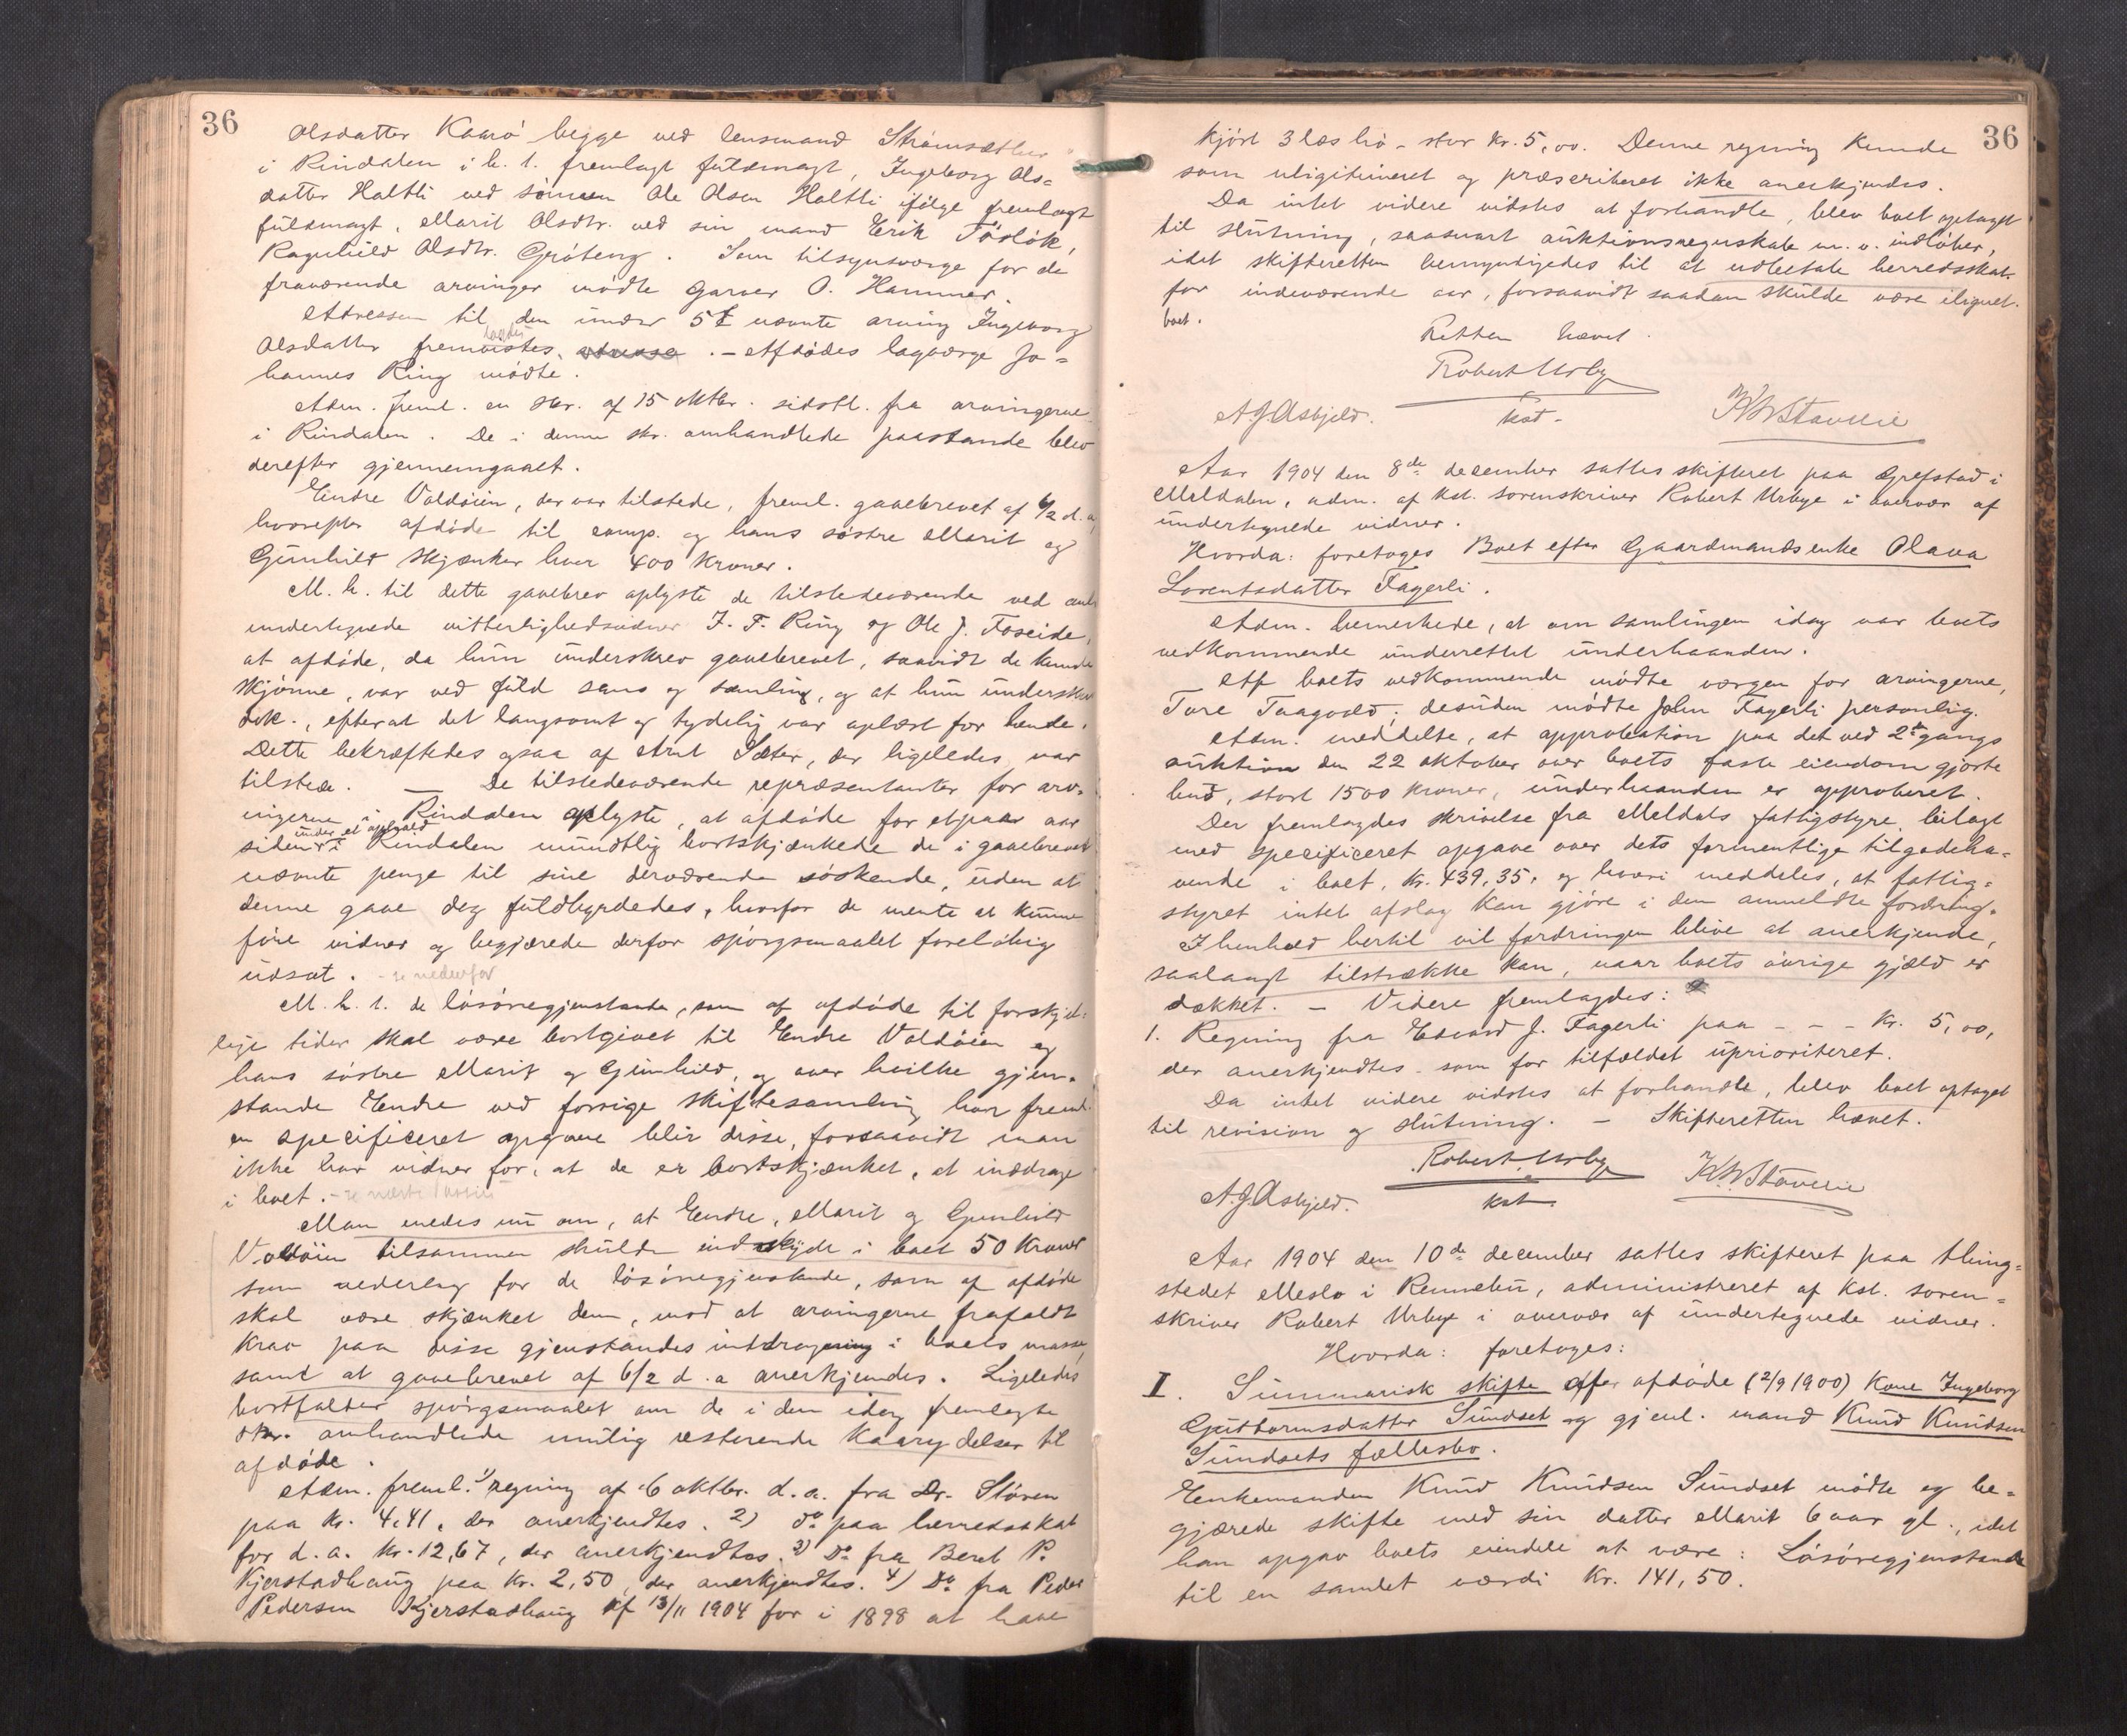 36
Olsdatter Kaarö begge ved lensmand Strømsæther
i Rindalen i h. t. fremlagt fuldmagt, Ingeborg Ols=
datter Haltli ved sönnen Ole Olsen Haltli ifölge fremlagt
fuldmagt, Marit Olsdtr. ved sin mand Erik
Ragnhild Olsdtr. Gröteng. Som tilsynsværge for de
fraværende arvinger mödte garver O. Hammer.
Adressen til den under 5 nævnte arving Ingeborg
Olsdatter fremvistes. — Afdödes lagværge Jo=
hannes Ring mödte.
Adm. freml. en skr. af 15 oktbr. sidstl. fra arvingerne
i Rindalen. De i denne skr. omhandlede paastande blev
derefter gjennemgaaet.
Endre Voldöien, der var tilstede, freml. gavebrevet af 6/2 d. a,
hvorefter afdöde til comp. og hans söstre Marit og
Gunhild skjænker hver 400 kroner.
M. h. til dette gavebrev oplyste de tilstedeværende ved
undertegnede vitterlighedsvidner J. F. Ring og Ole J. Foseide,
at afdöde, da hun underskrev gavebrevet, saavidt de kunde
skjönne, var ved fuld sans og samling, og at hun underskrev
dok., efterat det langsomt og tydelig var oplæst for hende.
Dette bekræftedes ogsaa af Arnt Sæter, der ligeledes var
tilstede. — De tilstedeværende repræsentanter for arv=
ingerne i Rindalen oplyste, at afdöde for et par aar
siden under et ophold i Rindalen mundtlig bortskjænkede de i gavebrevet
nævnte penge til sine derværende söskende, uden at
denne gave dog fuldbyrdedes, hvorfor de mente at kunne
före vidner og begjærede derfor spörgsmaalet foreløbig
udsat. - se nedenfor
M. h. t. de lösöregjenstande, som af afdöde til forskjel=
lige tider skal være bortgivet til Endre Voldöien og
hans söstre Marit og Gunhild, og over hvilke gjen=
stande Endre ved forrige skiftesamling har freml.
en specificeret opgave blir disse, forsaavidt man
ikke har vidner for, at de er bortskjænket, at inddrage
i boet. - se næste
Man enedes nu om, at Endre, Marit og Gunhild
Voldöien tilsammen skulde indskyde i boet 50 Kroner
som vederlag for de lösöregjenstande, som af afdöde
skal være skjænket dem, mod at arvingerne frafaldt
krav paa disse gjenstandes inddragning i boets masse,
samt at gavebrevet af 6/2 d. a anerkjendes. Ligeledes
bortfalder spörgsmaalet om de i den idag fremlagte
skr. omhandlede mulig resterende Kaarydelser til
afdöde.
Adm. freml. 1) regning af 6 oktbr. d. a. fra Dr. Stören
paa kr. 4,41, der anerkjendtes. 2) do paa herredsskat
for d. a. kr. 12,67, der anerkjendtes. 3) Do fra Beret P.
Kjerstadhaug paa kr. 2,50, der anerkjendtes. 4) Do fra Peder
Pedersen Kjerstadhaug af 13/11 1904 for i 1898 at have
36
kjört 3 læs hö - stor kr. 5,00. Denne regning kunde
som ulegitimeret og præscriberet ikke anerkjendes.
Da intet videre vidstes at forhandle, blev boet optaget
til slutning, saasnart auktionsregnskab m. v. indlöber,
idet skifteretten bemyndigedes til at udbetale herredsskat
for indeværende aar, forsaavidt saadan skulde være ilignet
boet.
Retten hævet.
Robert Urbye
kst.
A J Askjeld.
Aar 1904 den 8de december sattes skifteret paa Grefstad i
Meldalen, adm. af kst. sorenskriver Robert Urbye i overvær af
undertegnede vidner.
Hvorda: foretoges Boet efter Gaardmandsenke Olava
Lorentsdatter Fagerli.
Adm. bemerkede, at om samlingen idag var boets
vedkommende underrettet underhaanden.
Af boets vedkommende mödte værgen for arvingerne,
Tore Taagvold; desuden mödte John Fagerli personlig.
Adm. meddelte, at approbation paa det ved 2den gangs
auktion den 22 oktober over boets faste eiendom gjorte
bud, stort 1500 kroner, underhaanden er approberet.
Der fremlagdes skrivelse fra Meldals fattigstyre bilagt
med specificeret opgave over dets formentlige tilgodeha=
vende i boet, kr. 439,35, og hvori meddeles, at fattig=
styret intet afslag kan gjöre i den anmeldte fordring.
I henhold hertil vil fordringen blive at anerkjende,
saalangt tilstrække kan, naar boets övrige gjæld er
dækket. — Videre fremlagdes:
1. Regning fra Edvard J. Fagerli paa - - - kr. 5,00,
der anerkjendtes som for tilfældet uprioriteret.
Da intet videre vidstes at forhandle, blev boet optaget
til revision og slutning. — Skifteretten hævet.
Robert Urbye
kst.
A. J Askjeld.
Aar 1904 den 10de december sattes skifteret paa thing=
stedet Meslo i Rennebu, administreret af kst. soren=
skriver Robert Urbye i overvær af undertegnede vidner.
Hvorda: foretoges:
I. Summarisk skifte efter afdöde (2/9 1900) Kone Ingeborg
Guttormsdatter Sundset og gjenl. mand Knud Knudsen
Sundsets fællesbo.
Enkemanden Knud Knudsen Sundset mödte og be=
gjærede skifte med sin datter Marit 6 aar gl., idet
han opgav boets eiendele at være: Lösöregjenstande
til en samlet værdi kr. 141,50.